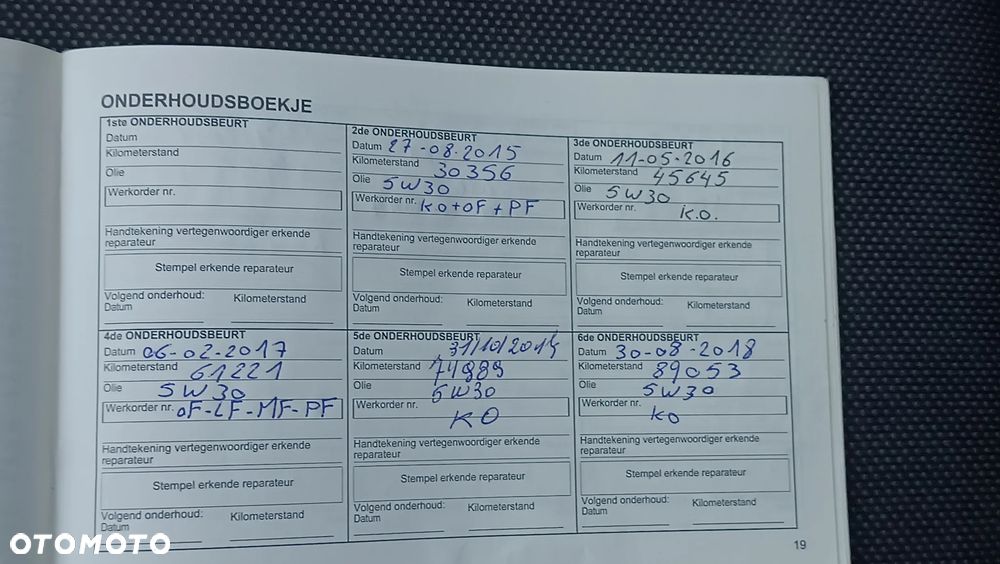 ONDERHOUDSBOEKJE
1ste ONDERHOUDSBEURT
Datum
Kilometerstand
Olie
Werkorder nr.
Handtekening vertegenwoordiger erkende
reparateur
Stempel erkende reparateur
Volgend onderhoud:
Datum
Kilometerstand
2de ONDERHOUDSBEURT
Datum 27-08-2015
Kilometerstand 30356
Olie 5W30
Werkorder nr. KO+OF+PF
Handtekening vertegenwoordiger erkende
reparateur
Stempel erkende reparateur
Volgend onderhoud:
Datum
Kilometerstand
3de ONDERHOUDSBEURT
Datum 11-05-2016
Kilometerstand 45645
Olie 5W30
Werkorder nr. K.O.
Handtekening vertegenwoordiger erkende
reparateur
Stempel erkende reparateur
Volgend onderhoud:
Datum
Kilometerstand
4de ONDERHOUDSBEURT
Datum 06-02-2017
Kilometerstand 61221
Olie 5W30
Werkorder nr. OF-LF-MF-PF
Handtekening vertegenwoordiger erkende
reparateur
Stempel erkende reparateur
Volgend onderhoud:
Datum
Kilometerstand
5de ONDERHOUDSBEURT
Datum
Kilometerstand
Olie 5W30
Werkorder nr. KO
Handtekening vertegenwoordiger erkende
reparateur
Stempel erkende reparateur
Volgend onderhoud:
Datum
Kilometerstand
6de ONDERHOUDSBEURT
Datum 30-08-2018
Kilometerstand 89053
Olie 5W30
Werkorder nr. KO
Handtekening vertegenwoordiger erkende
reparateur
Stempel erkende reparateur
Volgend onderhoud:
Datum
Kilometerstand
19
OTOMOTO